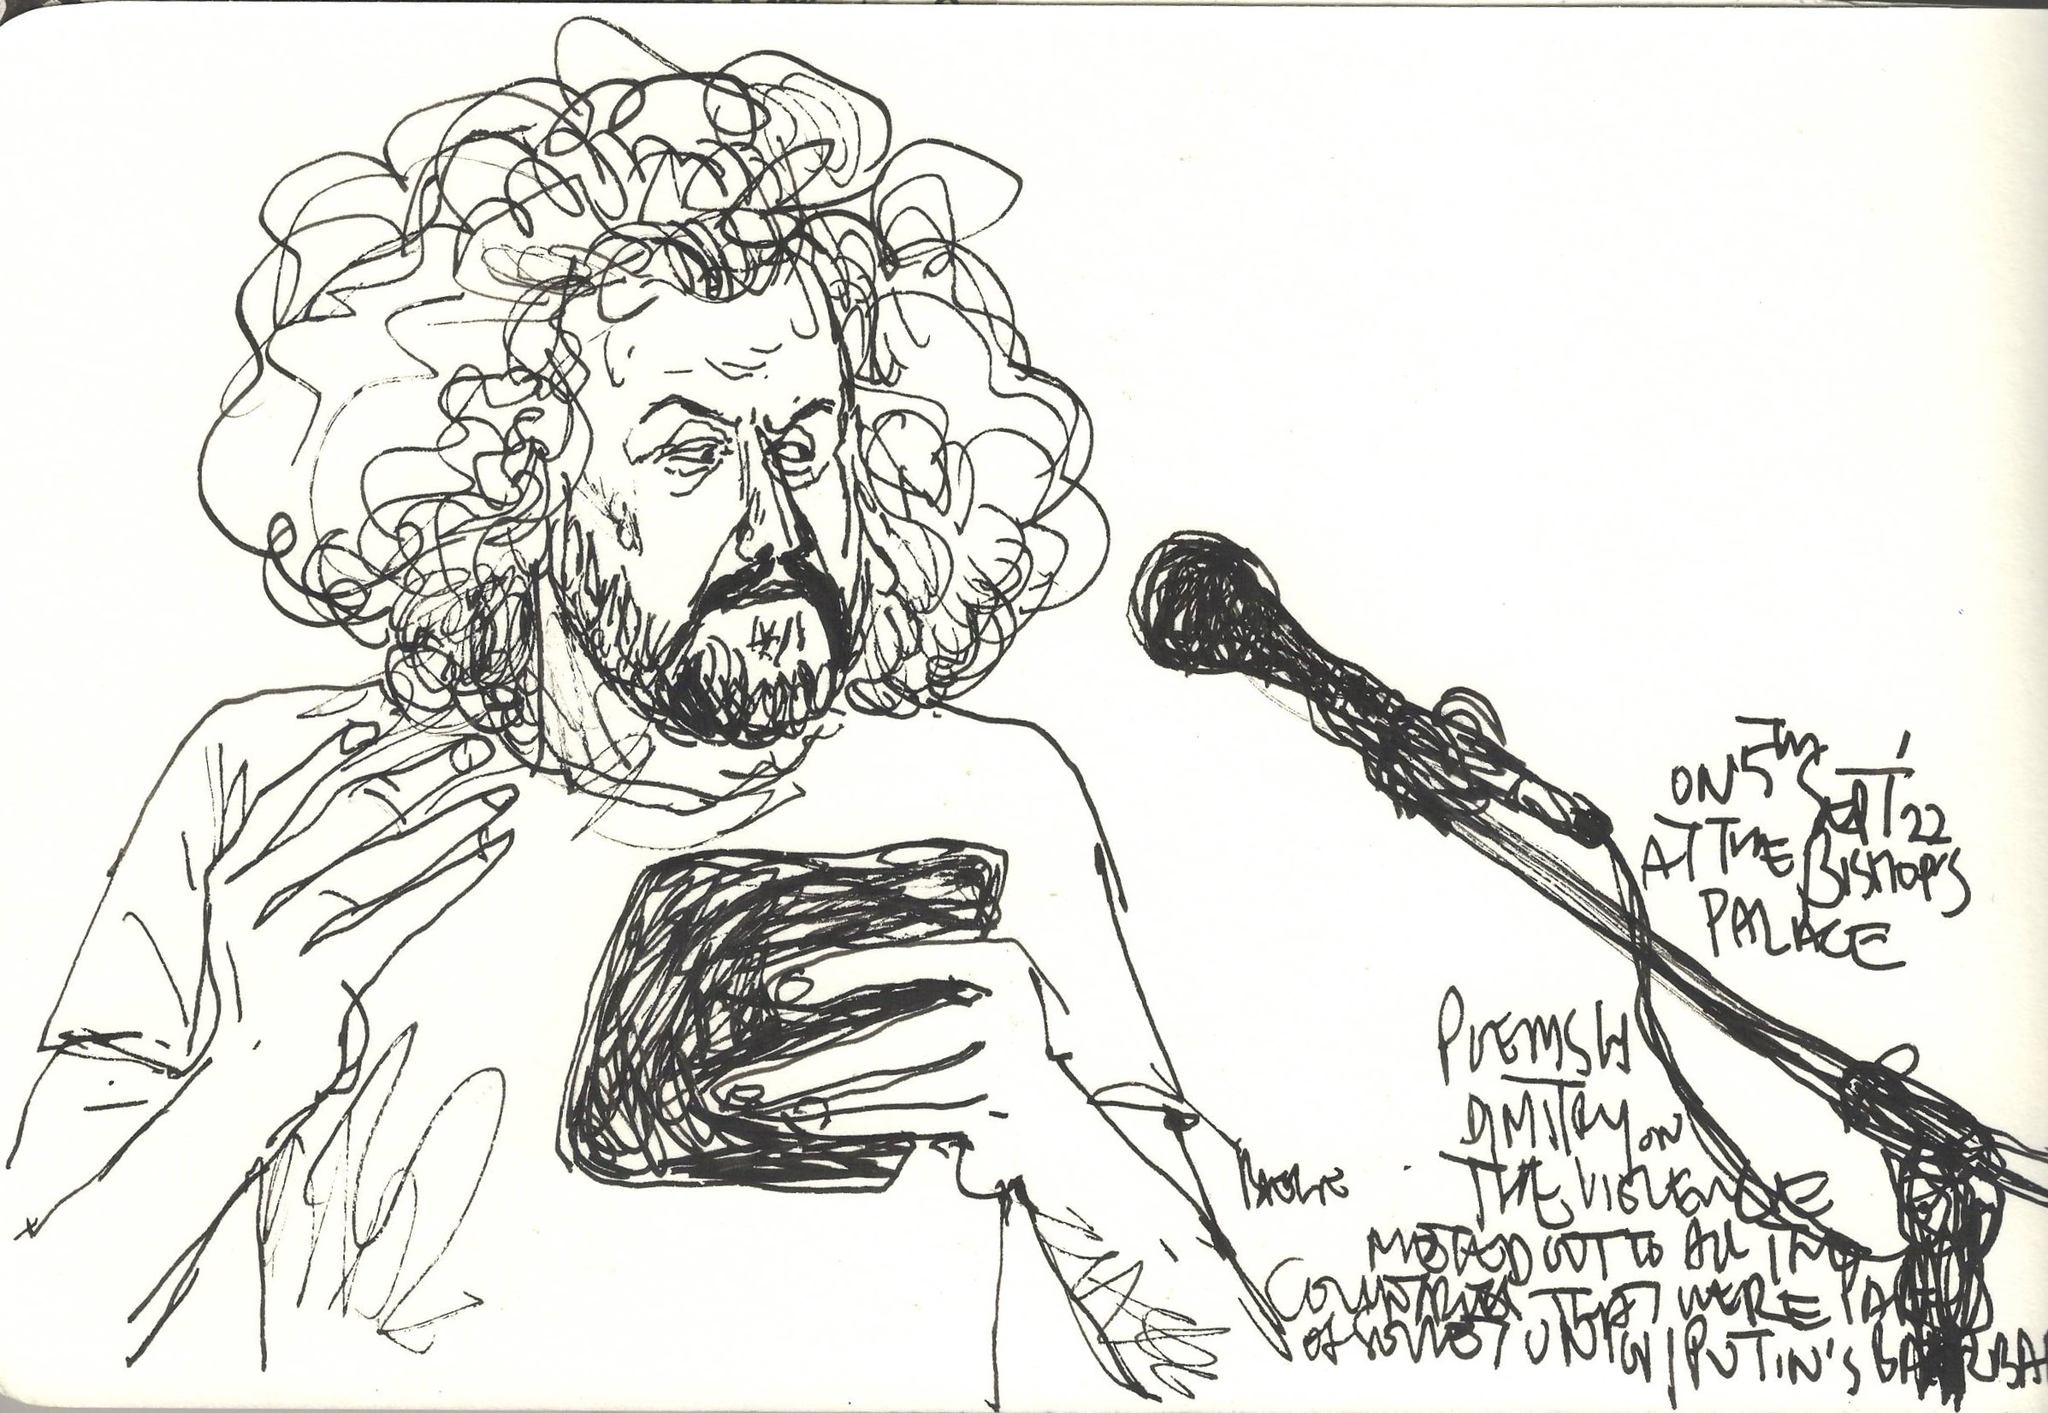 ON 5TH SEPT' 22
AT THE BISHOP'S
PALACE
POEMS by
DMITRY ON
THE VIOLENCE
METED OUT TO ALL THE
COUNTRIES THAT WERE PART
OF SOVIET UNION / PUTIN'S